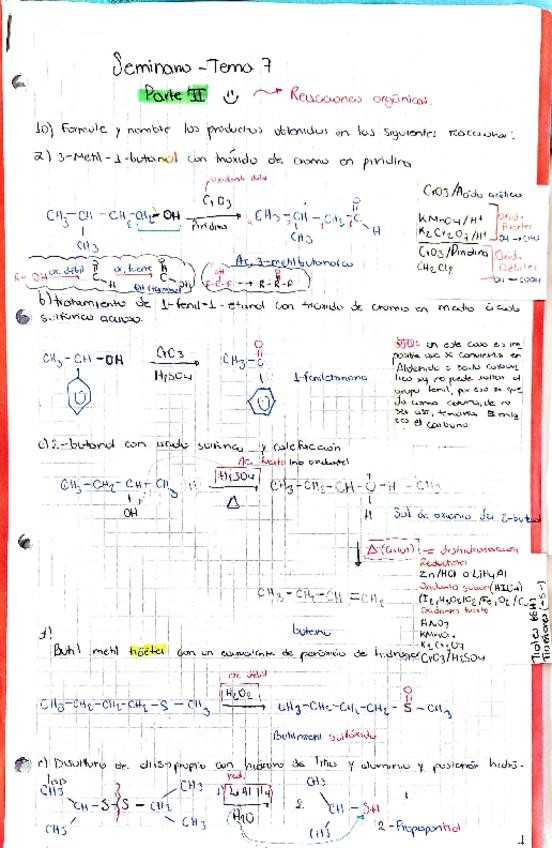 Seminario - Tema 7
Parte II → Reacciones orgánicas.
10) Formule y nombre los productos obtenidos en las siguientes reacciones:
a) 3-Metil-1-butanol con trióxido de cromo en piridina
oxidante débil
CH3-CH-CH2CH2-OH
CH3
CrO3
Piridina
CH3-CH-CH2-C
O
H
CH3
Ac. 3-metilbutanoico
CrO3/Acido acético
KMnO4/H+
K2Cr2O7/H+
Oxid. Fuertes
CrO3/Piridina
CH2Cl2
Oxid. Débiles
R-OH ox. débil ox. fuerte
b) tratamiento de 1-fenil-1-etanol con trióxido de cromo en medio ácido
sulfúrico acuoso.
CH3-CH-OH
CrO3
H2SO4
CH3-C
O
1-feniletanona
en este caso es im
posible que se convierta en
Aldehído o ácido carboxi
lico
no puede soltar el
grupo fenil, por eso se que
da como cetona, de no
ser así, tendría
el carbono
c) 2-butanol con acido sulfúrico y calefacción
Ac. fuerte (no oxidante)
CH3-CH2-CH-CH3
OH
H2SO4
Δ
CH3-CH2-CH-O-H CH3
H
Sal de oxonio del 2-butanol
Δ = deshidratación
CH3-CH2-CH=CH2
buteno
Reductores
Zn/HCl o LiAlH4
Oxidantes suaves
Oxidantes fuertes
HNO3
KMnO4
K2Cr2O7
CrO3/H2SO4
Tioles (SH)
Tioéteres (-S-)
d)
Butil metil tioéter con un equivalente de peróxido de hidrógeno
ox. débil
CH3-CH2-CH2-CH2-S-CH3
H2O2
CH3-CH2-CH2-CH2-S-CH3
O
Butilmetil sulfóxido
e) Disulfuro de diisopropilo con hidruro de litio y aluminio y posterior hidró-
lisis
red.
CH3 CH3
CH-S-S-CH
CH3 CH3
1) LiAlH4
H2O
2. CH3
CH-SH
CH3
2-Propanotiol
1